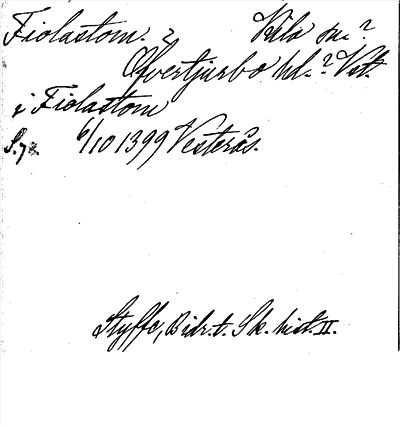 Fiolastom. ? Kila sn. ?
Öfvertjurbo hd. ? Vst.
i Fiolastom
S. 78. 6/10 1399 Vesterås.
Styffe, Bidr. t. Sk. hist. II.